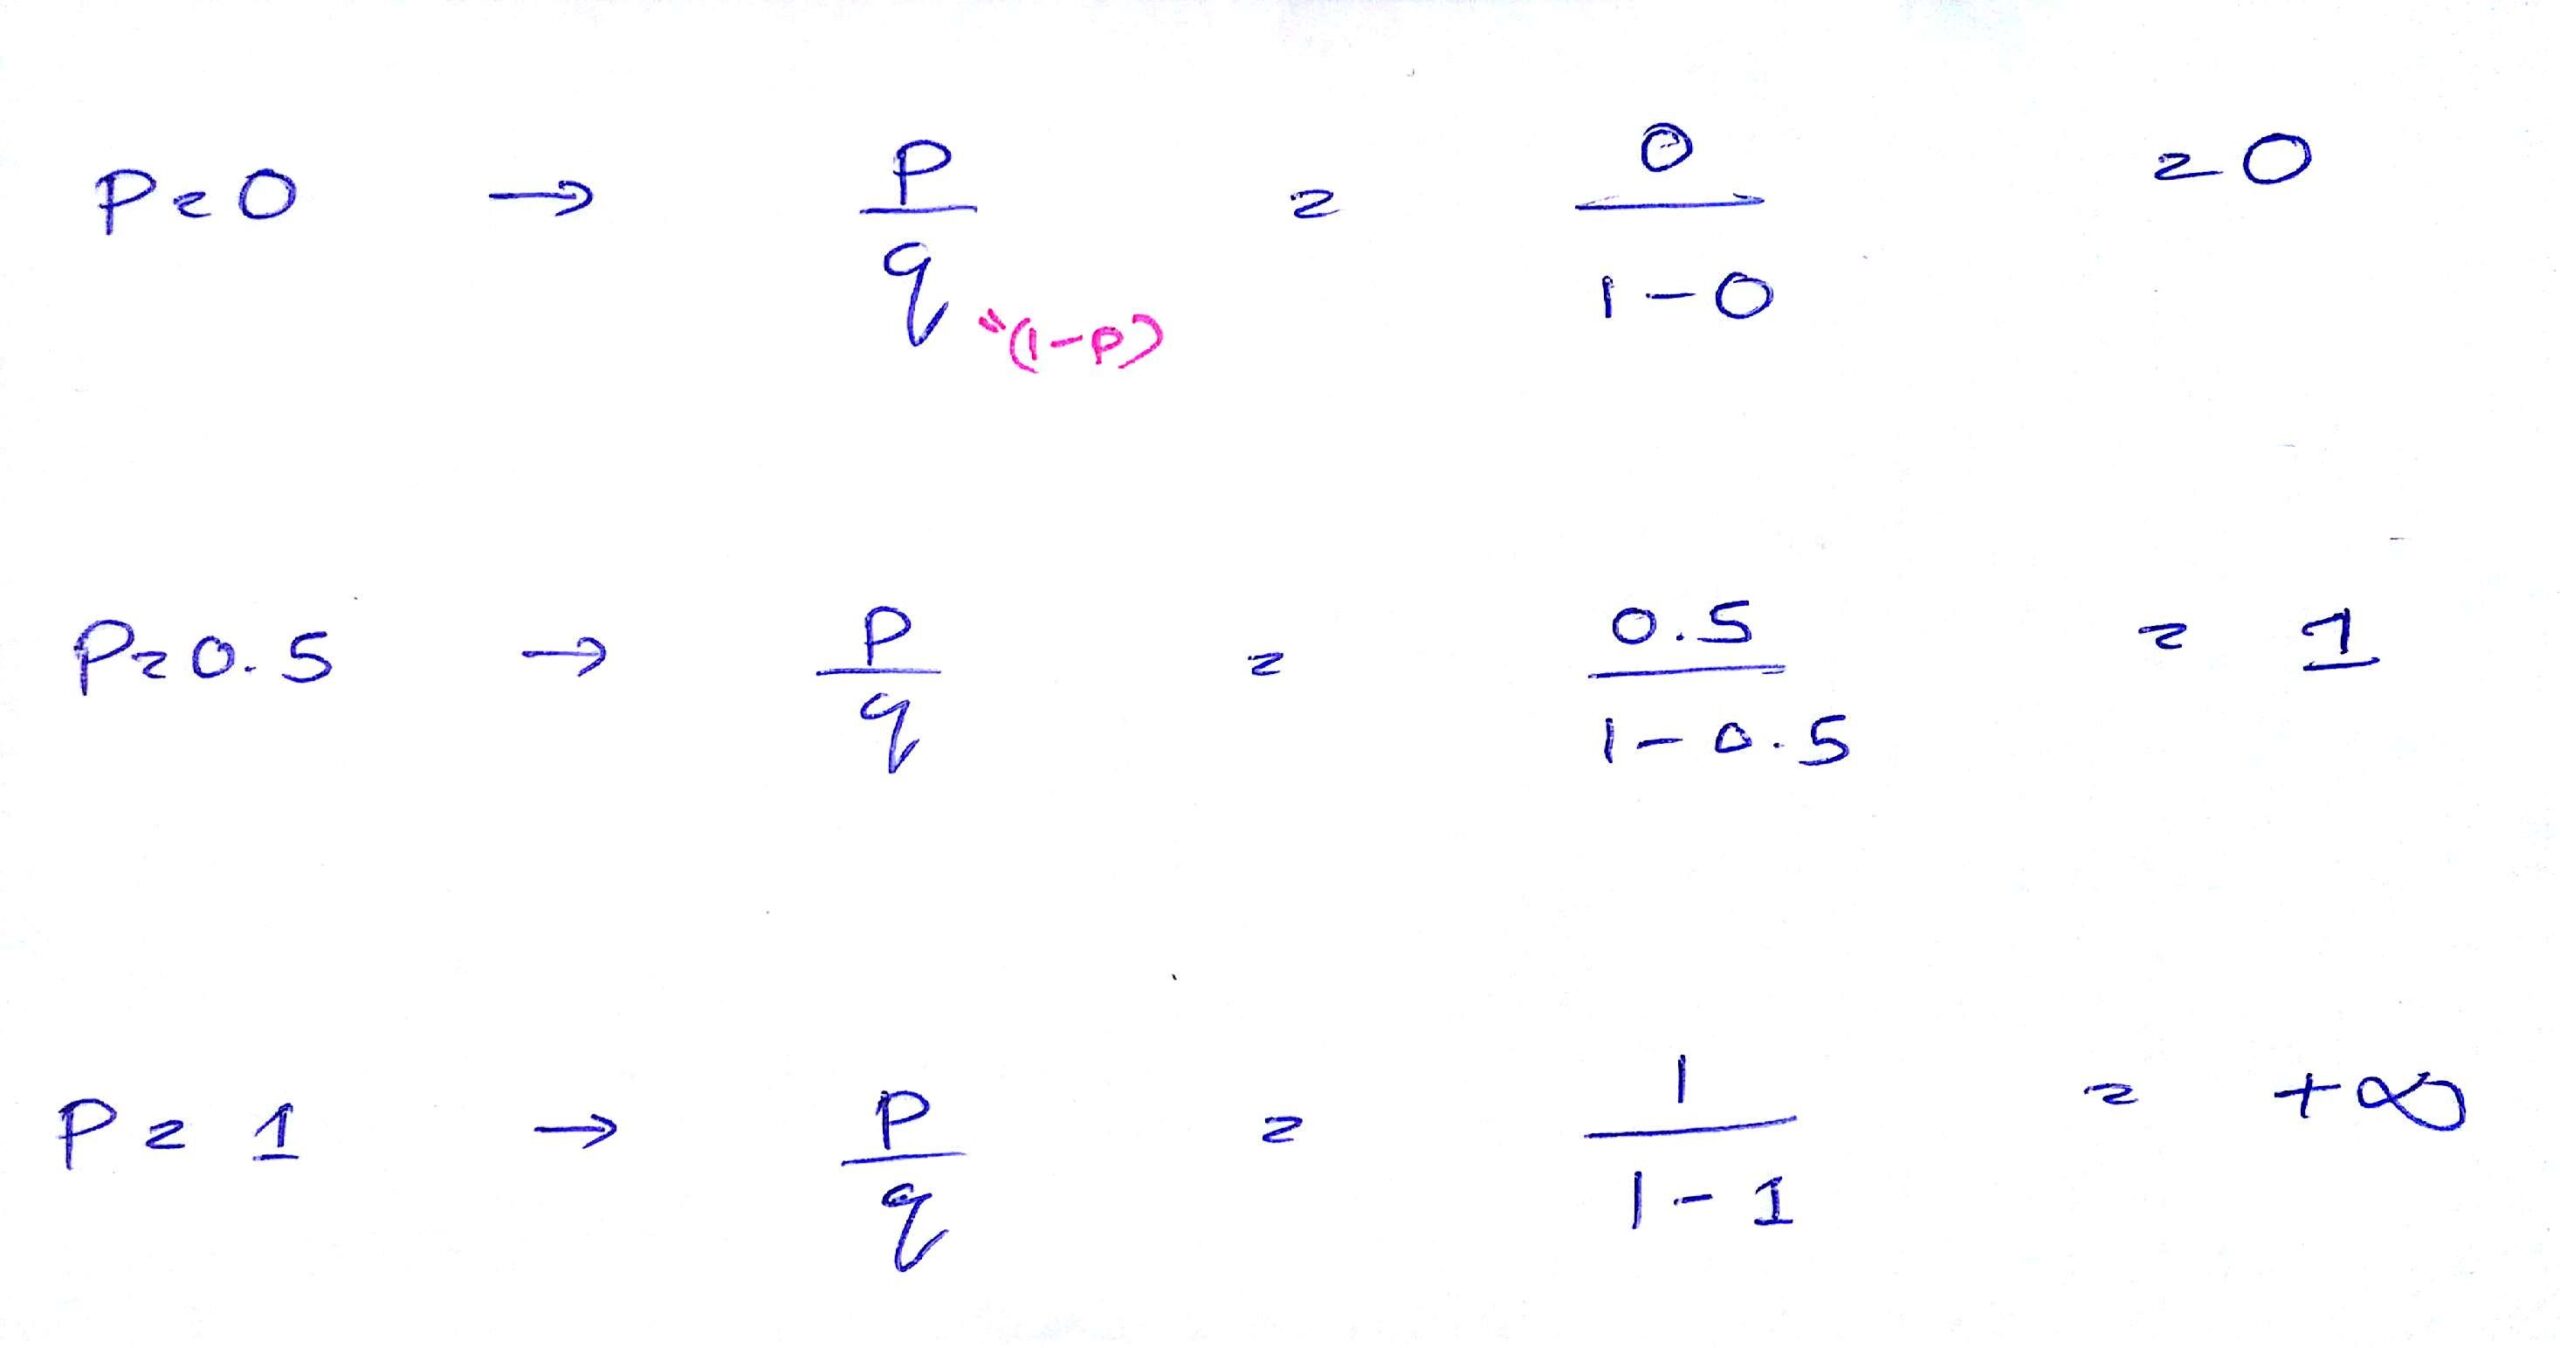 P=0 → p/q =(1-p) = 0/(1-0) =0
P=0.5 → p/q = 0.5/(1-0.5) = 1
P=1 → p/q = 1/(1-1) = +∞